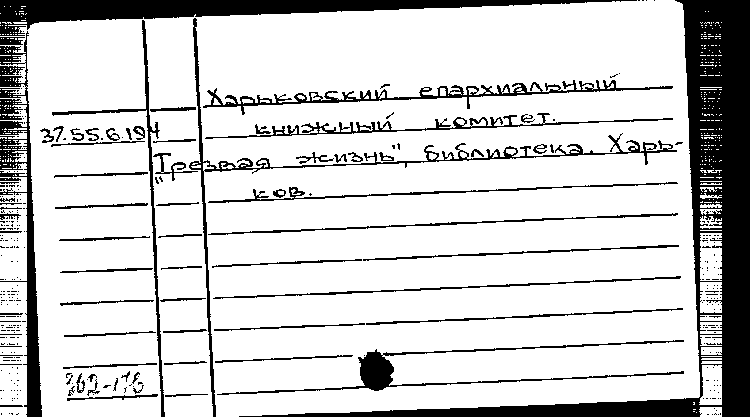 Харьковский епархиальный
37.55.6.194 книжный комитет.
"Трезвая жизнь", библиотека. Харь-
ков.
362-176